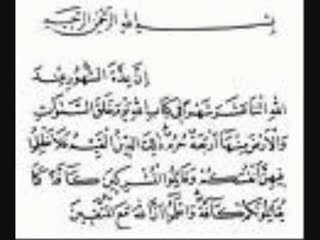 بسم الله الرحمن الرحيم
إن عدة الشهور عند
الله اثنا عشر شهرا في كتاب الله يوم خلق السموات
والأرض منها أربعة حرم ذلك الدين القيم فلا تظلموا
فيهن أنفسكم وقاتلوا المشركين كافة كما
يقاتلونكم كافة واعلموا أن الله مع المتقين